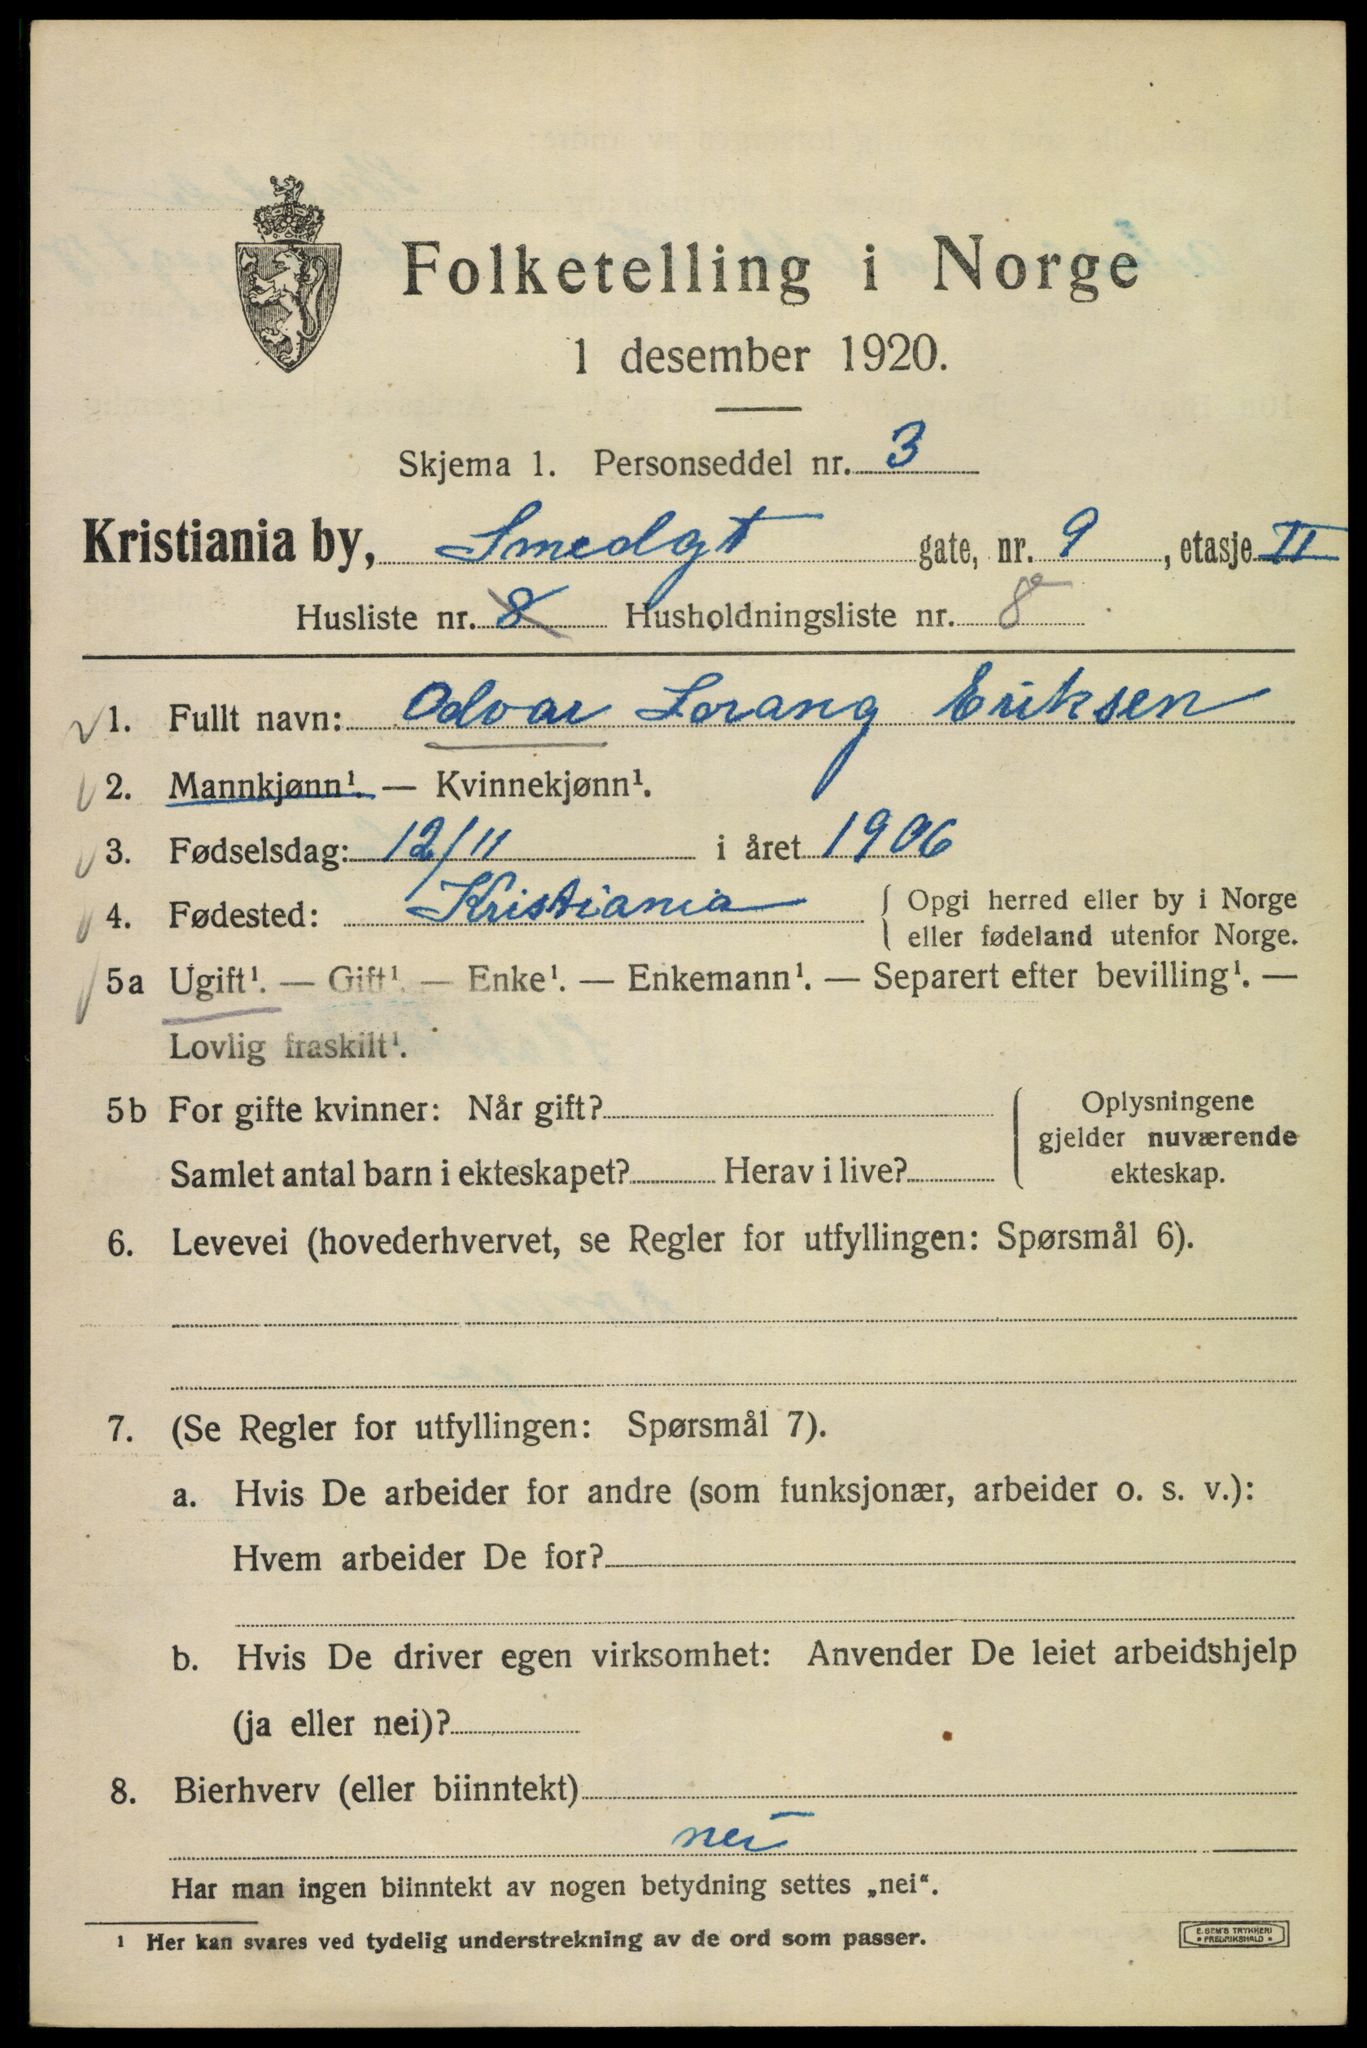 Folketelling i Norge
1 desember 1920.
Skjema 1. Personseddel nr. 3
Kristiania by, Smedgt gate, nr. 9, etasje II
Husliste nr. 8 Husholdningsliste nr. 8
1. Fullt navn: Odvar Lorang Eriksen
2. Mannkjønn¹. — Kvinnekjønn¹.
3. Fødselsdag: 12/11 i året 1906
4. Fødested: Kristiania { Opgi herred eller by i Norge
eller fødeland utenfor Norge.
5a Ugift¹. — Gift¹. — Enke¹. — Enkemann¹. — Separert efter bevilling¹. —
Lovlig fraskilt¹.
5b For gifte kvinner: Når gift?
Samlet antal barn i ekteskapet? Herav i live?
Oplysningene
gjelder nuværende
ekteskap.
6. Levevei (hovederhvervet, se Regler for utfyllingen: Spørsmål 6).
7. (Se Regler for utfyllingen: Spørsmål 7).
a. Hvis De arbeider for andre (som funksjonær, arbeider o. s. v.):
Hvem arbeider De for?
b. Hvis De driver egen virksomhet: Anvender De leiet arbeidshjelp
(ja eller nei)?
8. Bierhverv (eller biinntekt)
nei
Har man ingen biinntekt av nogen betydning settes „nei“.
¹ Her kan svares ved tydelig understrekning av de ord som passer.
E. SEM'S TRYKKERI
FREDRIKSHALD